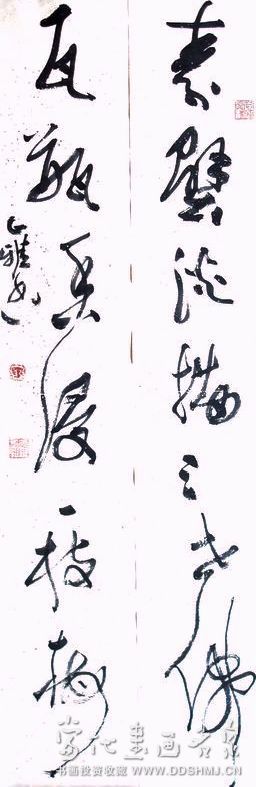 素壁淡描三世佛
瓦瓶香浸一枝梅
当代书画名家
书画投资收藏 WWW.DDSHMJ.CN